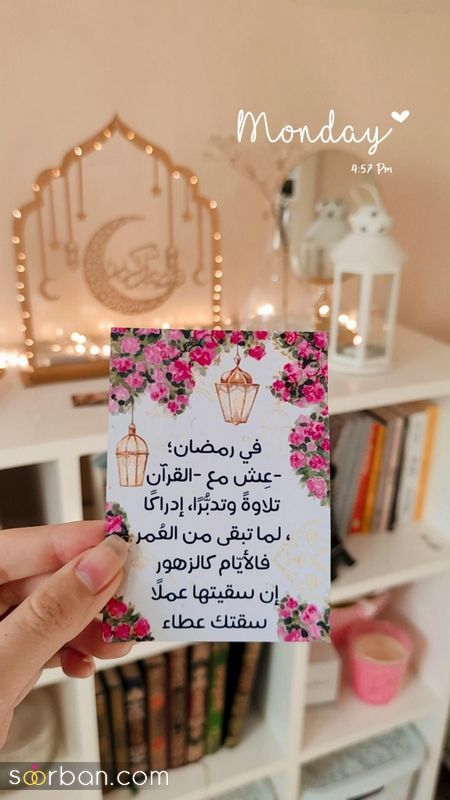 Monday
4:57 Pm
في رمضان؛
-عِش مع -القرآن
تلاوةً وتدبُّرًا، إدراكًا
، لما تبقى من العُمر
فالأيّام كالزهور
إن سقيتها عملًا
سقتك عطاء
soorban.com